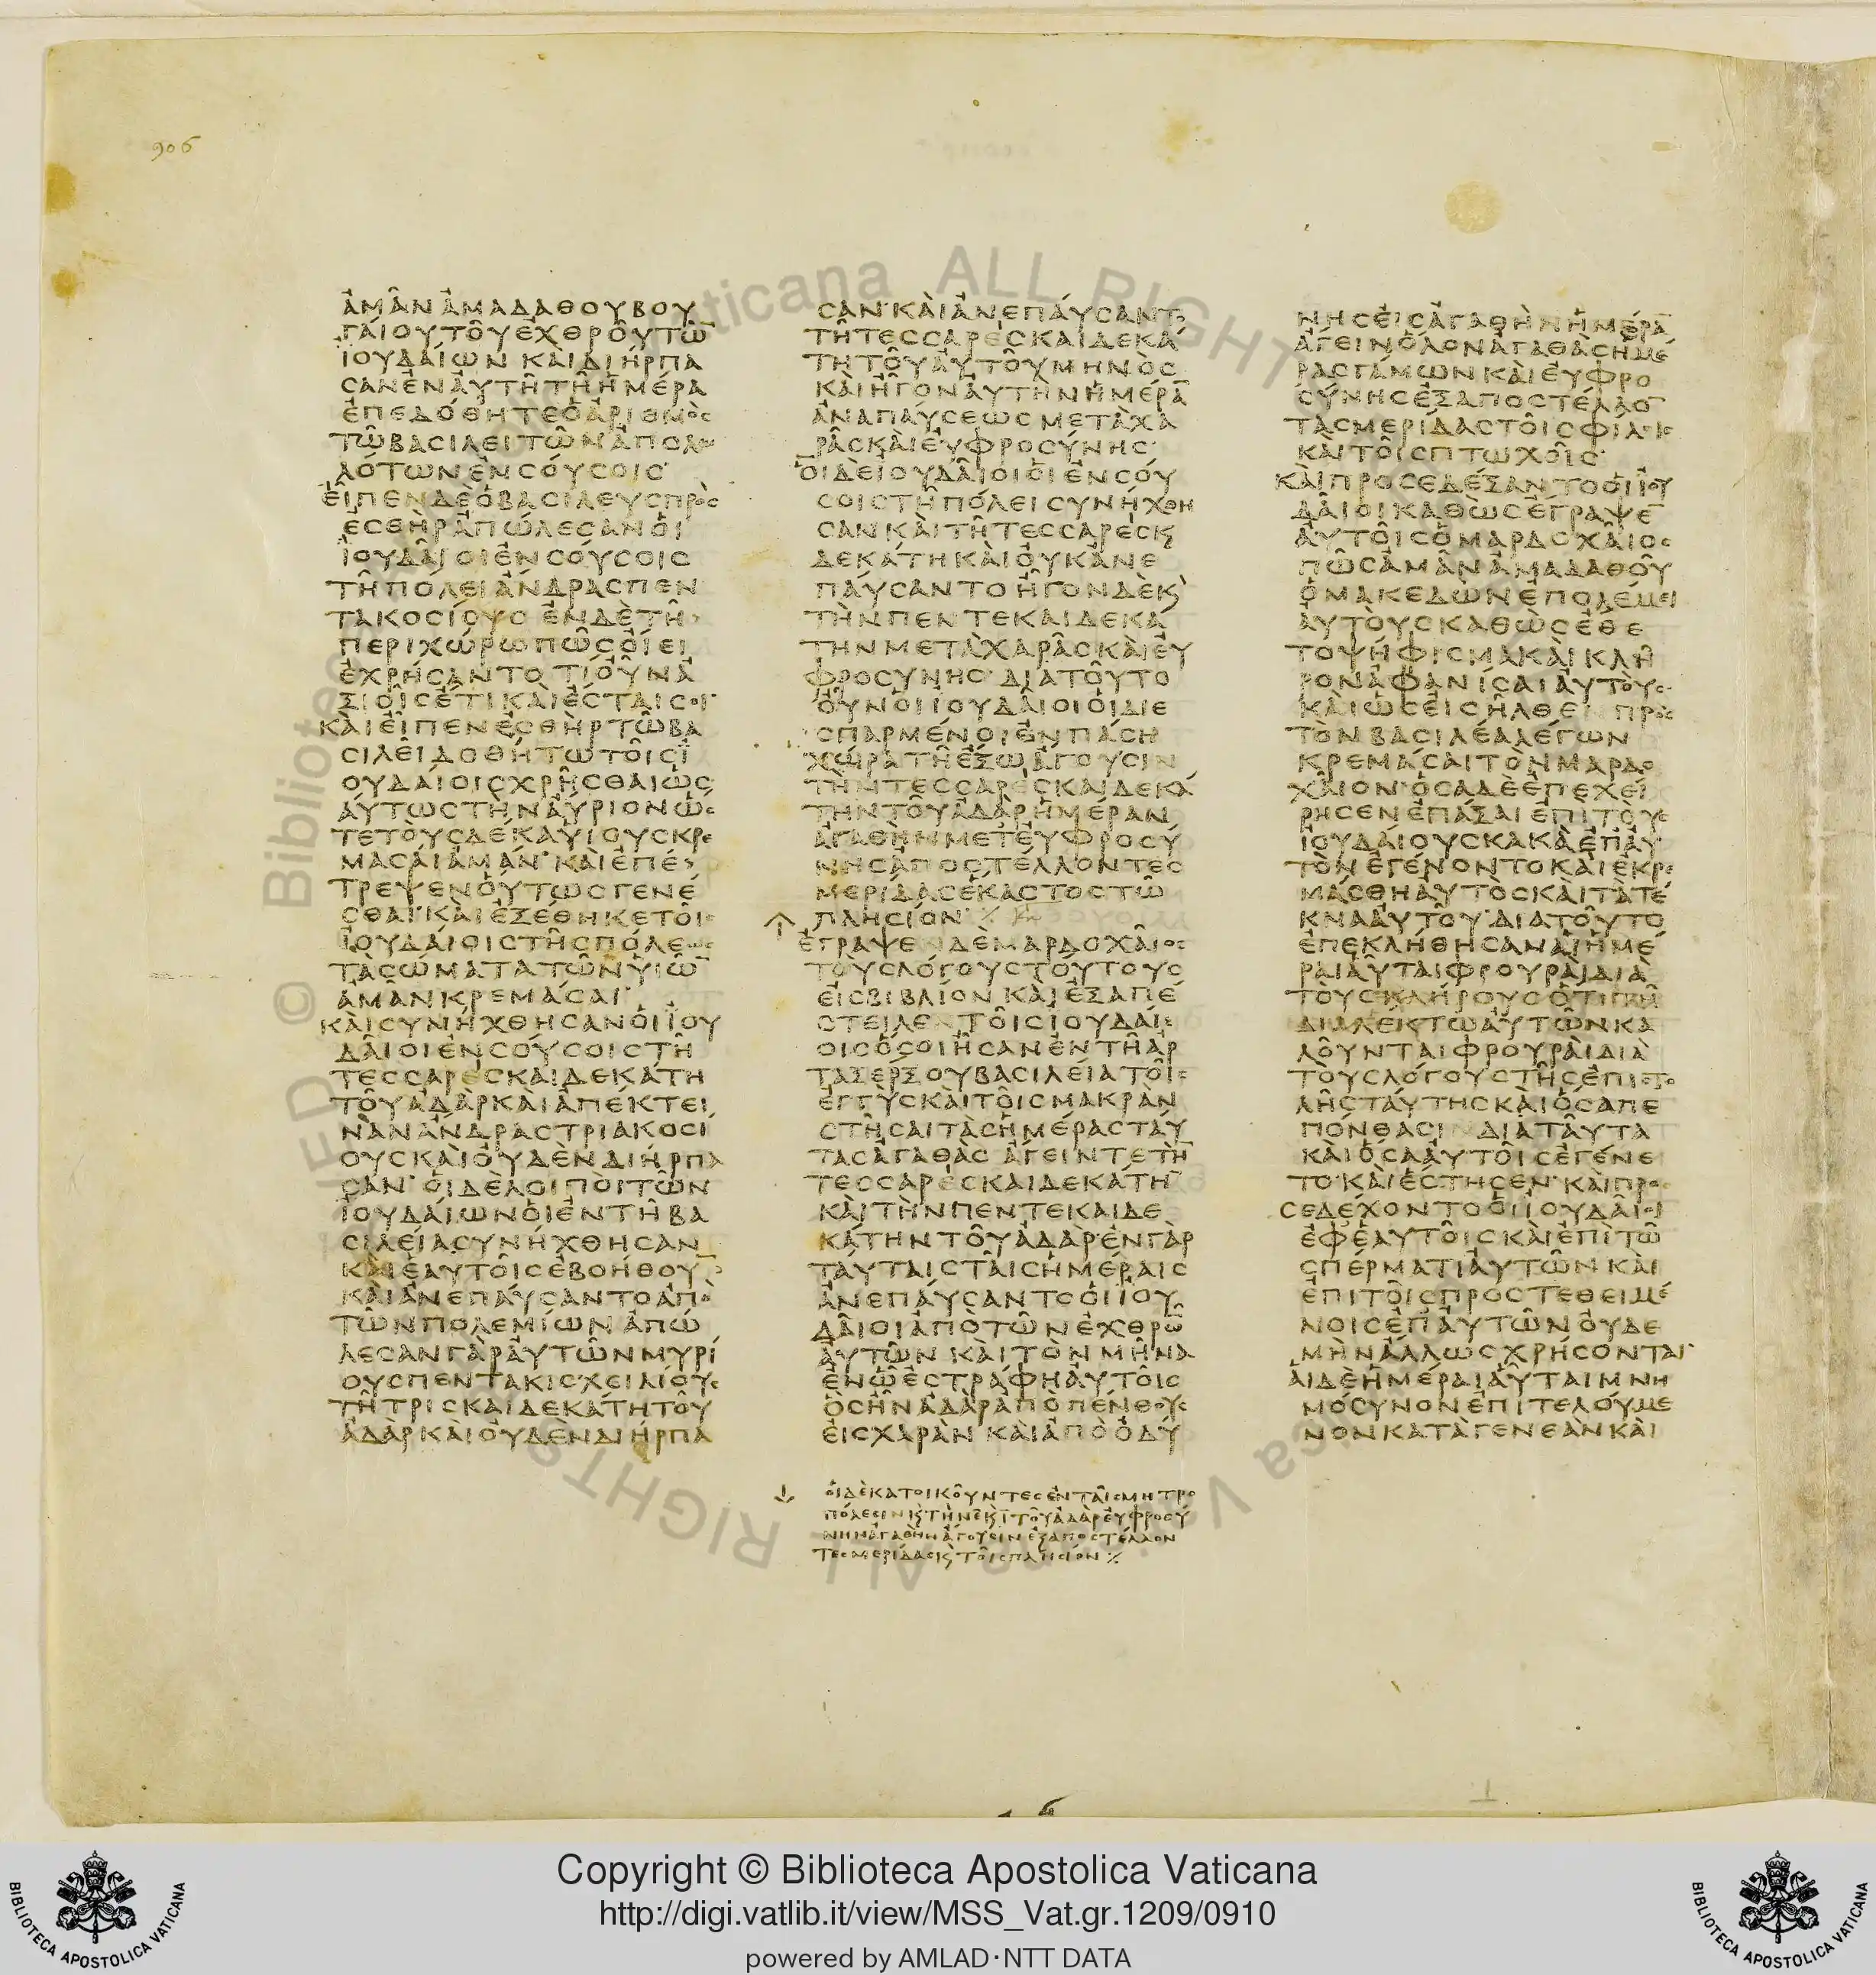 906
ἀμὰν ἀμαδαθου βου
γαίου τοῦ ἐχθροῦ τῶ̅
ἰουδαίων καὶ διήρπα
σαν ἐν αὐτῆ τῆ ἡμέρα
ἐπεδόθη τε ὁ ἀριθμὸς
τῶ βασιλεῖ τῶν ἀπολω
λότων ἐν σούσοις·
εἶπεν δὲ ὁ βασιλευς πρὸς
ἐσθὴρ ἀπώλεσαν οἱ
ἰουδαῖοι ἐν σούσοις
τῆ πόλει ἄνδρας πεν
τακοσίους ἐν δὲ τῆ
περιχώρω πῶς οἴει
ἐχρήσαντο τί οὖν ἀ
ξιοῖς ἔτι καὶ ἔσται σοι·
καὶ εἶπεν ἐσθὴρ τῶ βα
σιλεῖ δοθήτω τοῖς ἰ
ουδαίοις χρῆσθαι ὡς
αύτως τὴν αὔριον ὥσ
τε τοὺς δέκα υἱους κρε
μάσαι ἀμάν· καὶ ἐπέ
τρεψεν οὕτως γενέ
σθαι· καὶ ἐξέθηκε τοῖς
ἰουδαίοις τῆς πόλεως
τὰ σώματα τῶν υἱῶ̅
ἀμὰν κρεμάσαι·
καὶ συνήχθησαν οἱ ἰου
δαῖοι ἐν σούσοις τῆ
τεσσαρεσκαιδεκάτη
τοῦ ἀδὰρ καὶ ἀπέκτει
ναν ἄνδρας τριακοσί
ους καὶ οὐδὲν διήρπα
σαν· οἱ δὲ λοιποὶ τῶν
ἰουδαίων οἱ ἐν τῆ βα
σιλεία συνήχθησαν
καὶ ἑαυτοῖς ἐβοήθου
καὶ ἀνεπαύσαντο ἀπὸ
τῶν πολεμίων ἀπώ
λεσαν γὰρ αὐτῶν μυρί
ους πεντακισχειλίους
τῆ τρισκαιδεκάτη τοῦ
ἀδὰρ καὶ οὐδεν διήρπα
σαν· καὶ ἀνεπαύσαντο
τῆ τεσσαρεσκαιδεκά
τη τοῦ αὐτοῦ μηνὸς
καὶ ἦγον αὐτὴν ἡμέρα̅
ἀναπαύσεως μετὰ χα
ρᾶς καὶ εὐφροσύνης·
οἱ δὲ ἰουδαῖοι οἱ ἐν σού
σοις τῆ πόλει συνήχθη
σαν καὶ τῆ τεσσαρεσκαι
δεκάτη καὶ οὐκ ἀνε
παύσαντο ἦγον δὲ καὶ
τὴν πεντεκαιδεκά
την μετὰ χαρᾶς καὶ εὐ
φροσύνης· διὰ τοῦτο
οὖν οἱ ἰουδαῖοι οἱ διε
σπαρμένοι ἐν πάση
χώρα τῆ ἔξω ἄγουσιν
τὴν τεσσαρεσκαιδεκά
την τοῦ ἀδὰρ ἡμέραν
ἀγαθὴν μετ εὐφροσύ
νης ἀποστέλλοντες
μερίδας ἕκαστος τῶ
πλησίον· ⁒
ἔγραψεν δὲ μαρδοχαῖος
τοὺς λόγους τούτους
εἰς βιβλίον καὶ ἐξαπέ
στειλεν τοῖς ἰουδαί
οις ὅσοι ἦσαν ἐν τῆ ἀρ
ταξέρξου βασιλεία τοῖς
ἐγγὺς καὶ τοῖς μακρὰν
στῆσαι τὰς ἡμέρας ταύ
τας ἀγαθὰς ἄγειν τε τὴ̅
τεσσαρεσκαιδεκάτη̅
καὶ τὴν πεντεκαιδε
κάτην τοῦ ἀδὰρ· ἐν γὰρ
ταύταις ταῖς ἡμέραις
ἀνεπαύσαντο οἱ ἰου
δαῖοι ἀπὸ τῶν ἐχθρῶ̅
αὐτῶν καὶ τὸν μῆνα
ἐν ὧ ἐστράφη αὐτοῖς
ὃς ἦν ἀδὰρ ἀπὸ πένθους
εἰς χαρὰν καὶ ἀπὸ ὀδύ
οἱ δὲ κατοικοῦντες ἐν ταῖς μητρο
πόλεσιν καὶ τὴν ε̅ καὶ ι̅ τοῦ ἀδὰρ εὐφροσύ
νην ἀγαθὴν ἄγουσιν ἐξαποστέλλον
τες μερίδας καὶ τοῖς πλησίον ⁒
νης εἰς ἀγαθὴν ἡμέρα̅
ἄγειν ὅλον ἀγαθὰς ἡμέ
ρας γάμων καὶ εὐφρο
σύνης ἐξαποστέλλο̅
τας μερίδας τοῖς φίλοις
καὶ τοῖς πτωχοῖς·
καὶ προσεδέξαντο οἱ ἰου
δαῖοι καθὼς ἔγραψε̅
αὐτοῖς ὁ μαρδοχαῖος
πῶς ἀμὰν ἀμαδαθοῦ
ὁ μακεδὼν ἐπολέμει
αὐτοὺς καθὼς ἔθε
το ψήφισμα καὶ κλῆ
ρον ἀφανίσαι αὐτούς·
καὶ ὡς εἰσῆλθεν πρὸς
τὸν βασιλέα λέγων
κρεμάσαι τὸν μαρδο
χαῖον· ὅσα δὲ ἐπεχεί
ρησεν ἐπάξαι ἐπὶ τοὺς
ἰουδαίους κακὰ ἐπ αὐ
τὸν ἐγένοντο καὶ ἐκρε
μάσθη αὐτὸς καὶ τὰ τέ
κνα αὐτοῦ· διὰ τοῦτο
ἐπεκλήθησαν αἱ ἡμέ
ραι αὗται φρουραὶ διὰ
τοὺς κλήρους ὅτι τῆ
διαλέκτω αὐτῶν κα
λοῦνται φρουραὶ διὰ
τοὺς λόγους τῆς ἐπιστο
λῆς ταύτης καὶ ὅσα πε
πόνθασιν διὰ ταῦτα
καὶ ὅσα αὐτοῖς ἐγένε
το· καὶ ἔστησεν· καὶ προ
σεδέχοντο οἱ ἰουδαῖοι
ἐφ ἑαυτοῖς καὶ ἐπὶ τῶ
σπέρματι αὐτῶν καὶ
ἐπὶ τοῖς προστεθειμέ
νοις ἐπ αὐτῶν οὐδὲ
μὴν ἄλλως χρήσονται·
αἱ δὲ ἡμέραι αὗται μνη
μόσυνον ἐπιτελούμε
νον κατὰ γενεὰν καὶ
© Biblioteca Apostolica Vaticana ALL RIGHTS RESERVED
Copyright © Biblioteca Apostolica Vaticana
http://digi.vatlib.it/view/MSS_Vat.gr.1209/0910
powered by AMLAD·NTT DATA
BIBLIOTECA APOSTOLICA VATICANA
BIBLIOTECA APOSTOLICA VATICANA